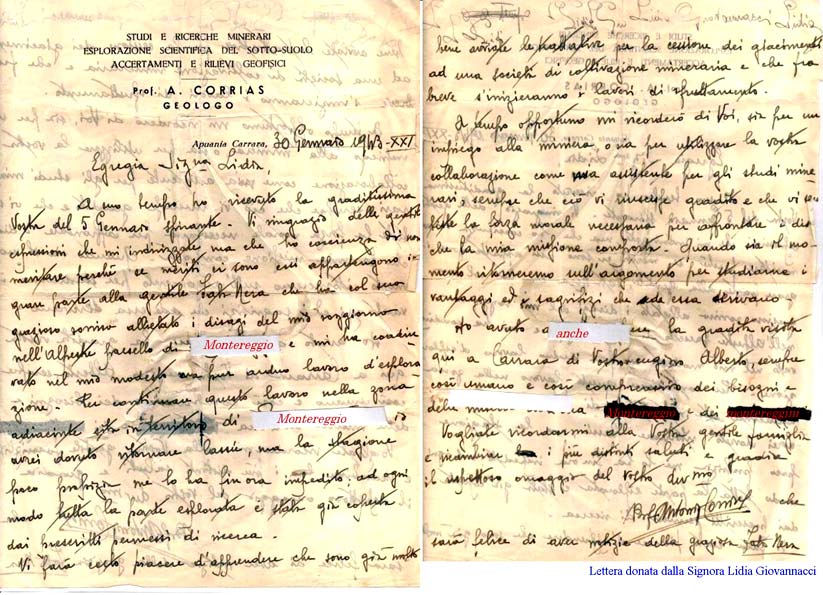 STUDI E RICERCHE MINERARI
ESPLORAZIONE SCIENTIFICA DEL SOTTO-SUOLO
ACCERTAMENTI E RILIEVI GEOFISICI
Prof. A. CORRIAS
GEOLOGO
Apuania Carrara, 30 Gennaro 1943-XXI
Egregia Sig.na Lidia,
A suo tempo ho ricevuto la graditissima
Vostra del 5 Gennaro spirante. Vi ringrazio delle gentili
espressioni che mi indirizzate ma che ho coscienza di non
meritare perchè se meriti ci sono essi appartengono in
gran parte alla gentile Fata Nera che ha col suo
grazioso sorriso allietato i disagi del mio soggiorno
nell'Alpestre paesello di Montereggio e mi ha coadiu
vato nel mio modesto ma pur arduo lavoro d'esplora
zione. Per continuare questo lavoro nella zona
adiacente sita in territorio di Montereggio
avrei dovuto ritornare lassù, ma la stagione
poco propizia me lo ha fin ora impedito, ad ogni
modo tutta la parte esplorata è stata già coperta
dai prescritti permessi di ricerca.
Vi farà certo piacere d'apprendere che sono già molto
bene avviate le trattative per la cessione dei giacimenti
ad una società di coltivazione mineraria e che fra
breve s'inizieranno i lavori di sfruttamento.
A tempo opportuno mi ricorderò di Voi, sia per un
impiego alla miniera, o sia per utilizzare la vostra
collaborazione come mia assistente per gli studi mine
rari, sempre che ciò vi riuscisse gradito e che vi sen
tiste la forza morale necessaria per affrontare i disa
che la mia missione comporta. Quando sia il mo
mento ritorneremo sull'argomento per studiarne i
vantaggi ed i sagrifizi che da essa derivano
Ho avuto anche la gradita visita
qui a Carrara di Vostro cugino Alberto, sempre
così umano e così comprensivo dei bisogni e
delle Montereggio e dei montereggini
Vogliate ricordarmi alla Vostra gentile famiglia
e ricambiare i più distinti saluti e gradire
il rispettoso omaggio del vostro dev.mo
Prof. Antonio Corrias
che
sarà felice di avere notizie della graziosa Fata Nera
Lettera donata dalla Signora Lidia Giovannacci